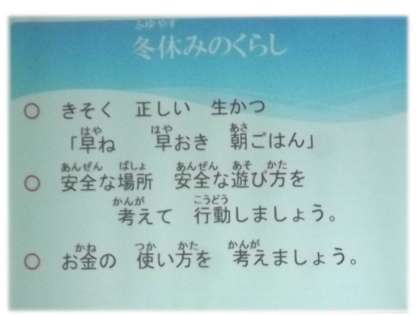 冬休みのくらし
○ きそく 正しい 生かつ
「早ね 早おき 朝ごはん」
○ 安全な場所 安全な遊び方を
考えて 行動しましょう。
○ お金の 使い方を 考えましょう。